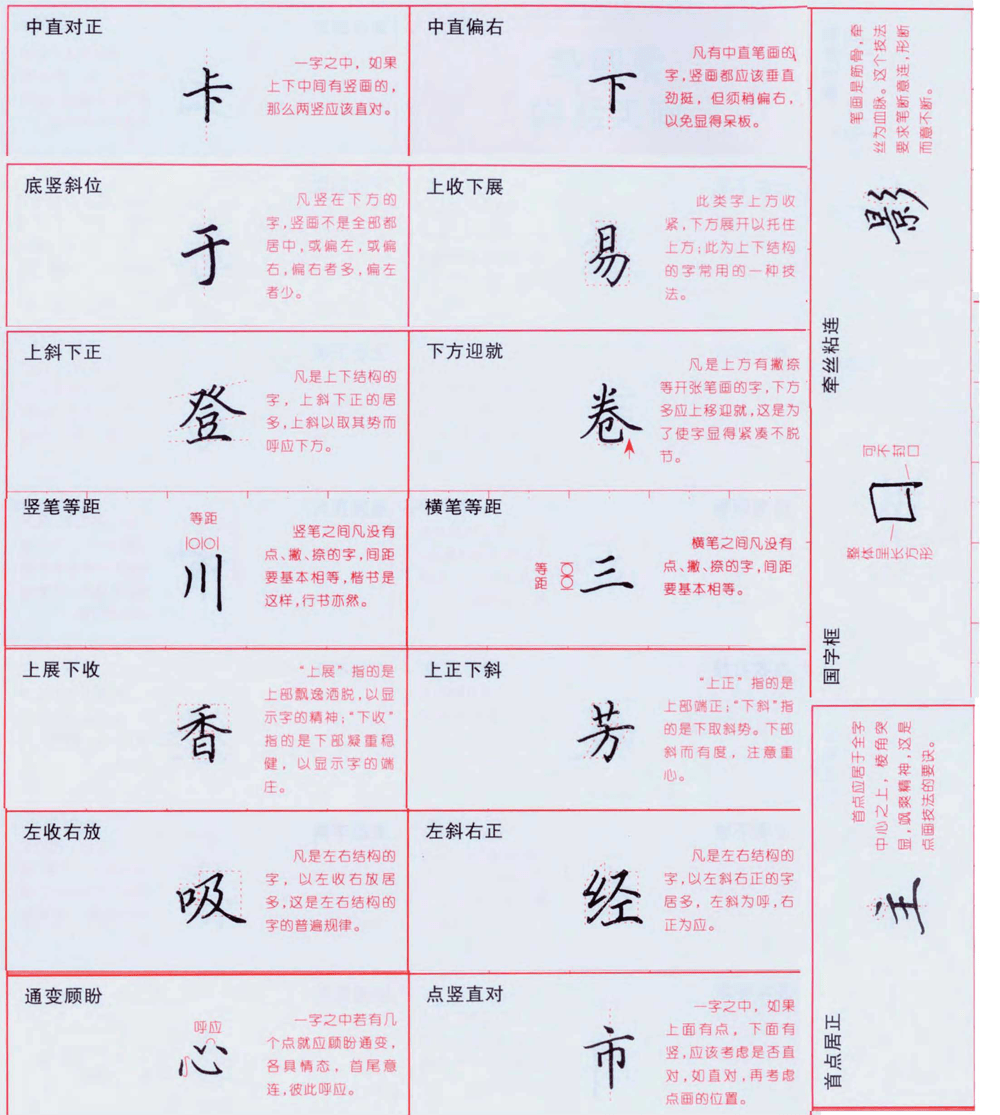 中直对正
卡
一字之中，如果
上下中间有竖画的，
那么两竖应该直对。
中直偏右
下
凡有中直笔画的
字，竖画都应该垂直
劲挺，但须稍偏右，
以免显得呆板。
底竖斜位
于
凡竖在下方的
字，竖画不是全部都
居中，或偏左，或偏
右，偏右者多，偏左
者少。
上收下展
易
此类字上方收
紧，下方展开以托住
上方；此为上下结构
的字常用的一种技
法。
上斜下正
登
凡是上下结构的
字，上斜下正的居
多，上斜以取其势而
呼应下方。
下方迎就
卷
凡是上方有撇捺
等开张笔画的字，下方
多应上移迎就，这是为
了使字显得紧凑不脱
节。
竖笔等距
等距
川
竖笔之间凡没有
点、撇、捺的字，间距
要基本相等，楷书是
这样，行书亦然。
横笔等距
等距
三
横笔之间凡没有
点、撇、捺的字，间距
要基本相等。
上展下收
香
“上展”指的是
上部飘逸洒脱，以显
示字的精神；“下收”
指的是下部凝重稳
健，以显示字的端
庄。
上正下斜
芳
“上正”指的是
上部端正；“下斜”指
的是下取斜势。下部
斜而有度，注意重
心。
左收右放
吸
凡是左右结构的
字，以左收右放居
多，这是左右结构的
字的普遍规律。
左斜右正
经
凡是左右结构的
字，以左斜右正的字
居多，左斜为呼，右
正为应。
通变顾盼
呼应
心
一字之中若有几
个点就应顾盼通变，
各具情态，首尾意
连，彼此呼应。
点竖直对
市
一字之中，如果
上面有点，下面有
竖，应该考虑是否直
对，如直对，再考虑
点画的位置。
牵丝粘连
影
笔画是筋骨，牵
丝为血脉。这个技法
要求笔断意连，形断
而意不断。
国字框
可不封口
整体呈长方形
首点居正
主
首点应居于全字
中心之上，棱角突
显，飒爽精神，这是
点画技法的要诀。